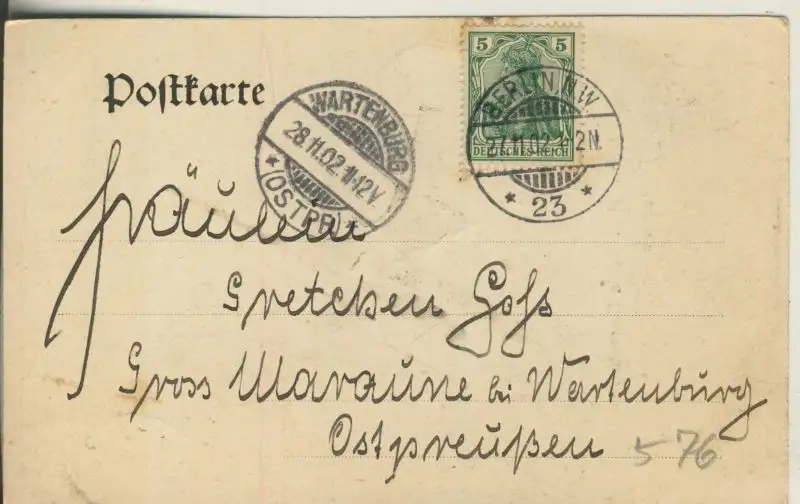 Postkarte
5 5
DEUTSCHES REICH
WARTENBURG
28.11.02.11-12V
* (OSTPR.) *
BERLIN N.W.
27.11.02. 2N.
* 23 *
Fräulein
Gretchen
Gross Maraune bei Wartenburg
Ostpreußen
576